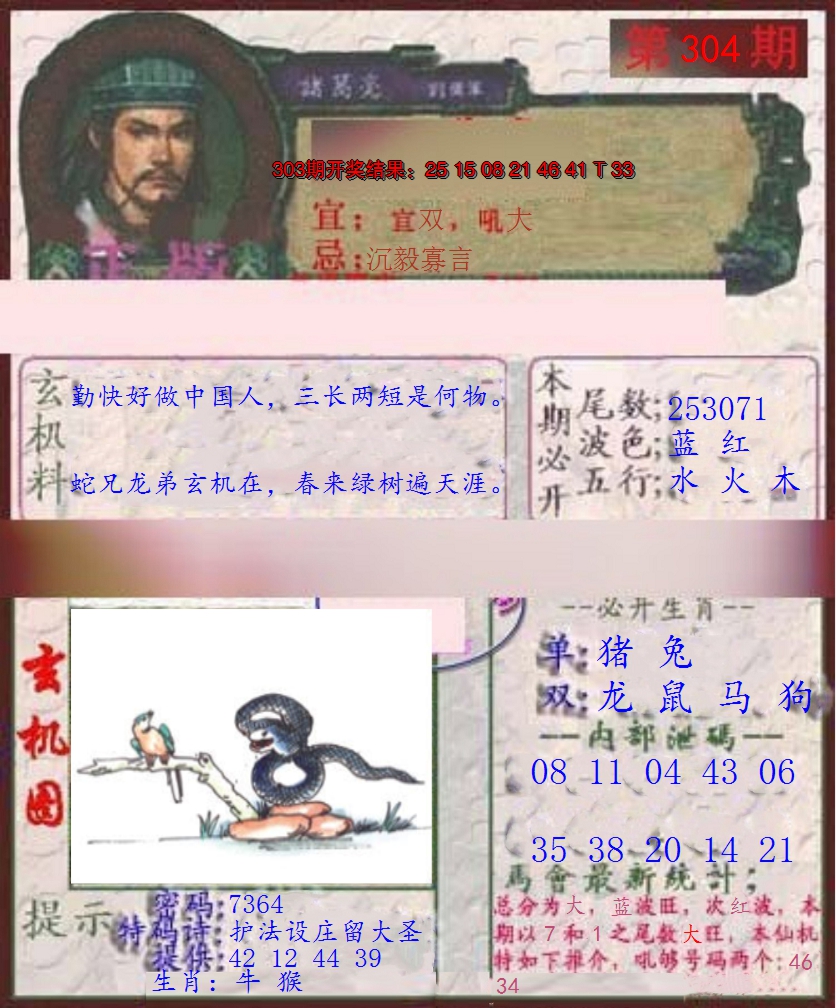 第 304 期
諸葛亮 劉伯溫
303期开奖结果：25 15 08 21 46 41 T 33
宜；宜双，吼大
忌；沉毅寡言
正版
玄机料
勤快好做中国人，三长两短是何物。
蛇兄龙弟玄机在，春来绿树遍天涯。
本期必开
尾数；253071
波色；蓝 红
五行；水 火 木
玄机图
--必开生肖--
单：猪 兔
双：龙 鼠 马 狗
--内部泄碼--
08 11 04 43 06
35 38 20 14 21
馬會最新統計；
总分为大，蓝波旺，次红波，本
期以7和1之尾数大旺，本仙机
特如下推介，吼够号码两个：46
34
提示
密码：7364
特码诗：护法设庄留大圣
提供：42 12 44 39
生肖：牛 猴